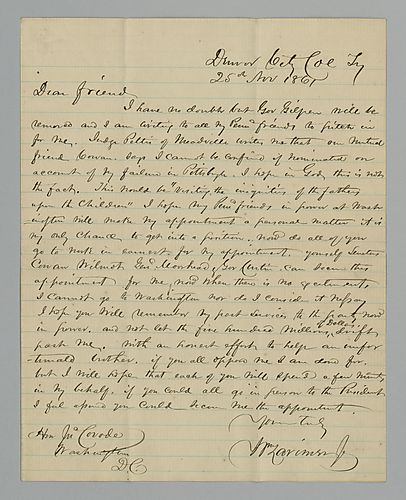 Denver City Col Ty
25th Nov 1861
Dear friend
I have no doubt but Gov Gilpin will be
removed and I am writing to all my Penn friends to put in
for me. Judge Pettis of Meadville writes me that our mutual
friend Cowan says I cannot be confirmed if nominated on
account of my failure in Pittsbgh. I hope in God this is not
the fact. This would be "Visiting the iniquities of the fathers
upon the Children" I hope my Penn friends in power at Wash-
ington will make my appointment a personal matter it is
my only chance to get into a position. now do all of you
go to work in earnest for my appointment. yourself Senators
Cowan Wilmot Genl Moorhead, Gov Curtin can secure this
appointment for me now when there is no excitement
I cannot go to Washington nor do I consider it
I hope you will remember my past services to the party now
in power. and not let the five hundred Millions of Dollars drift
past me. With an honest effort to help an unfor-
tunate brother. if you all oppose me I am done for
but I will hope that each of you will spend a few minutes
in my behalf. if you could all go in person to the President
I feel assured you could secure me the appointment.
Yours truly
Wm Larimer Jr
Hon Jno Covode
Washington
D.C